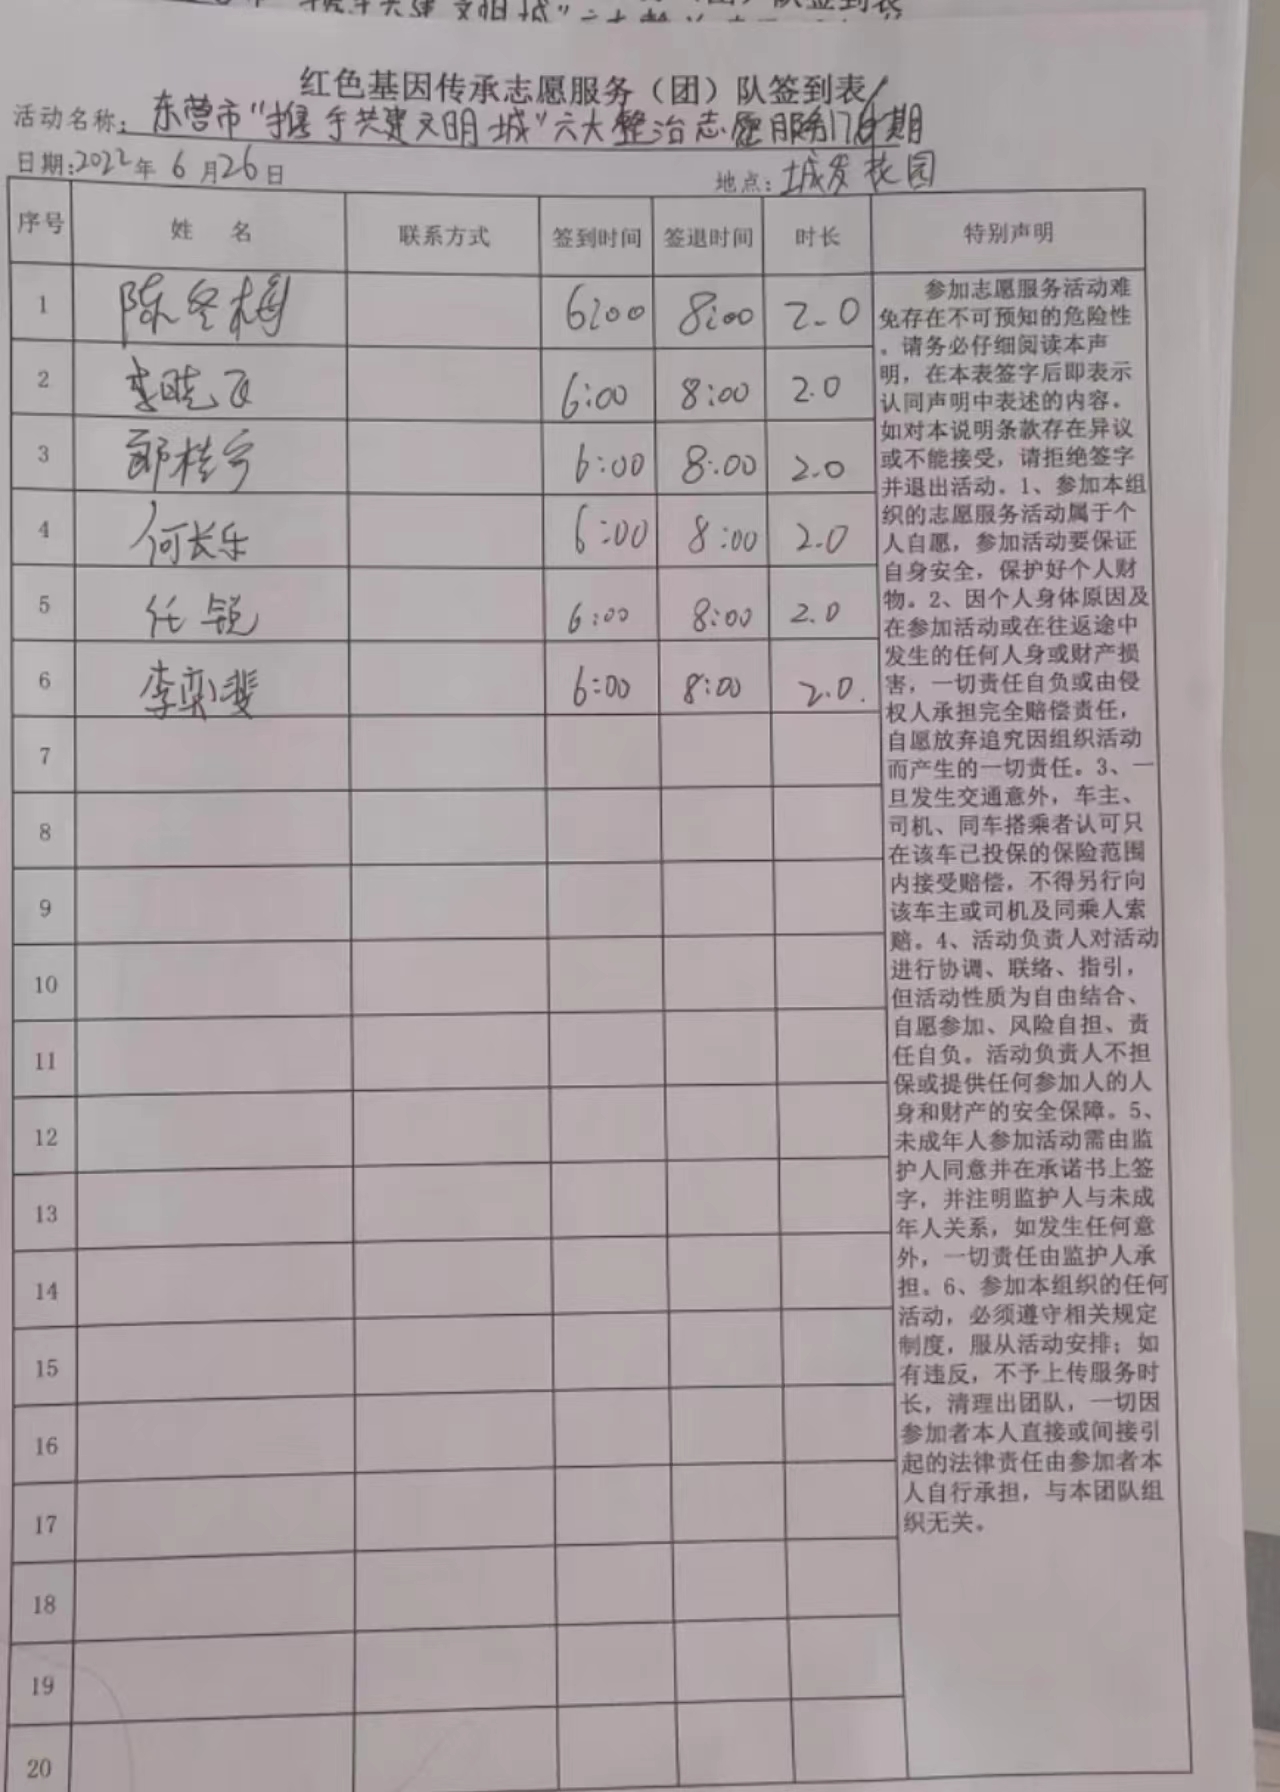 红色基因传承志愿服务（团）队签到表
活动名称：东营市“携手共建文明城”六大整治志愿服务17期
日期:2022年 6月26日
地点：城发花园
序号 姓 名 联系方式 签到时间 签退时间 时长 特别声明
1 陈冬梅 6:00 8:00 2.0
2 李晓飞 6:00 8:00 2.0
3 郭桂宁 6:00 8:00 2.0
4 何长乐 6:00 8:00 2.0
5 任锐 6:00 8:00 2.0
6 李奕斐 6:00 8:00 2.0.
7
8
9
10
11
12
13
14
15
16
17
18
19
20
参加志愿服务活动难
免存在不可预知的危险性
。请务必仔细阅读本声
明，在本表签字后即表示
认同声明中表述的内容。
如对本说明条款存在异议
或不能接受，请拒绝签字
并退出活动。1、参加本组
织的志愿服务活动属于个
人自愿，参加活动要保证
自身安全，保护好个人财
物。2、因个人身体原因及
在参加活动或在往返途中
发生的任何人身或财产损
害，一切责任自负或由侵
权人承担完全赔偿责任，
自愿放弃追究因组织活动
而产生的一切责任。3、一
旦发生交通意外，车主、
司机、同车搭乘者认可只
在该车已投保的保险范围
内接受赔偿，不得另行向
该车主或司机及同乘人索
赔。4、活动负责人对活动
进行协调、联络、指引，
但活动性质为自由结合、
自愿参加、风险自担、责
任自负。活动负责人不担
保或提供任何参加人的人
身和财产的安全保障。5、
未成年人参加活动需由监
护人同意并在承诺书上签
字，并注明监护人与未成
年人关系，如发生任何意
外，一切责任由监护人承
担。6、参加本组织的任何
活动，必须遵守相关规定
制度，服从活动安排；如
有违反，不予上传服务时
长，清理出团队，一切因
参加者本人直接或间接引
起的法律责任由参加者本
人自行承担，与本团队组
织无关。